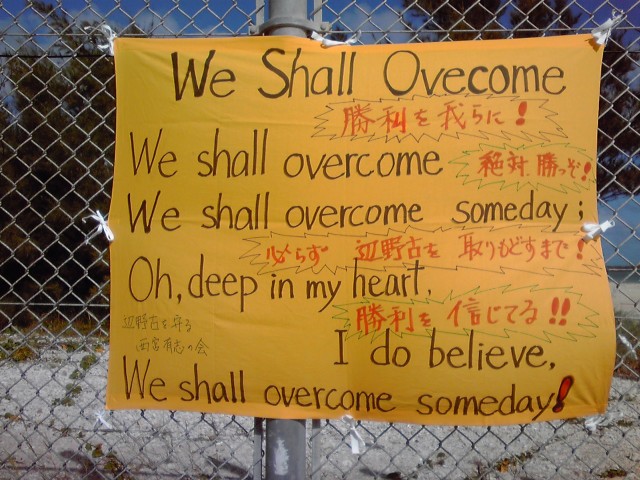 We Shall Ovecome
勝利を我らに!
We shall overcome
絶対勝つぞ!
We shall overcome someday;
必らず 辺野古を 取りもどすまで!
Oh, deep in my heart,
勝利を 信じてる!!
辺野古を守る
西宮有志の会
I do believe,
We shall overcome someday!